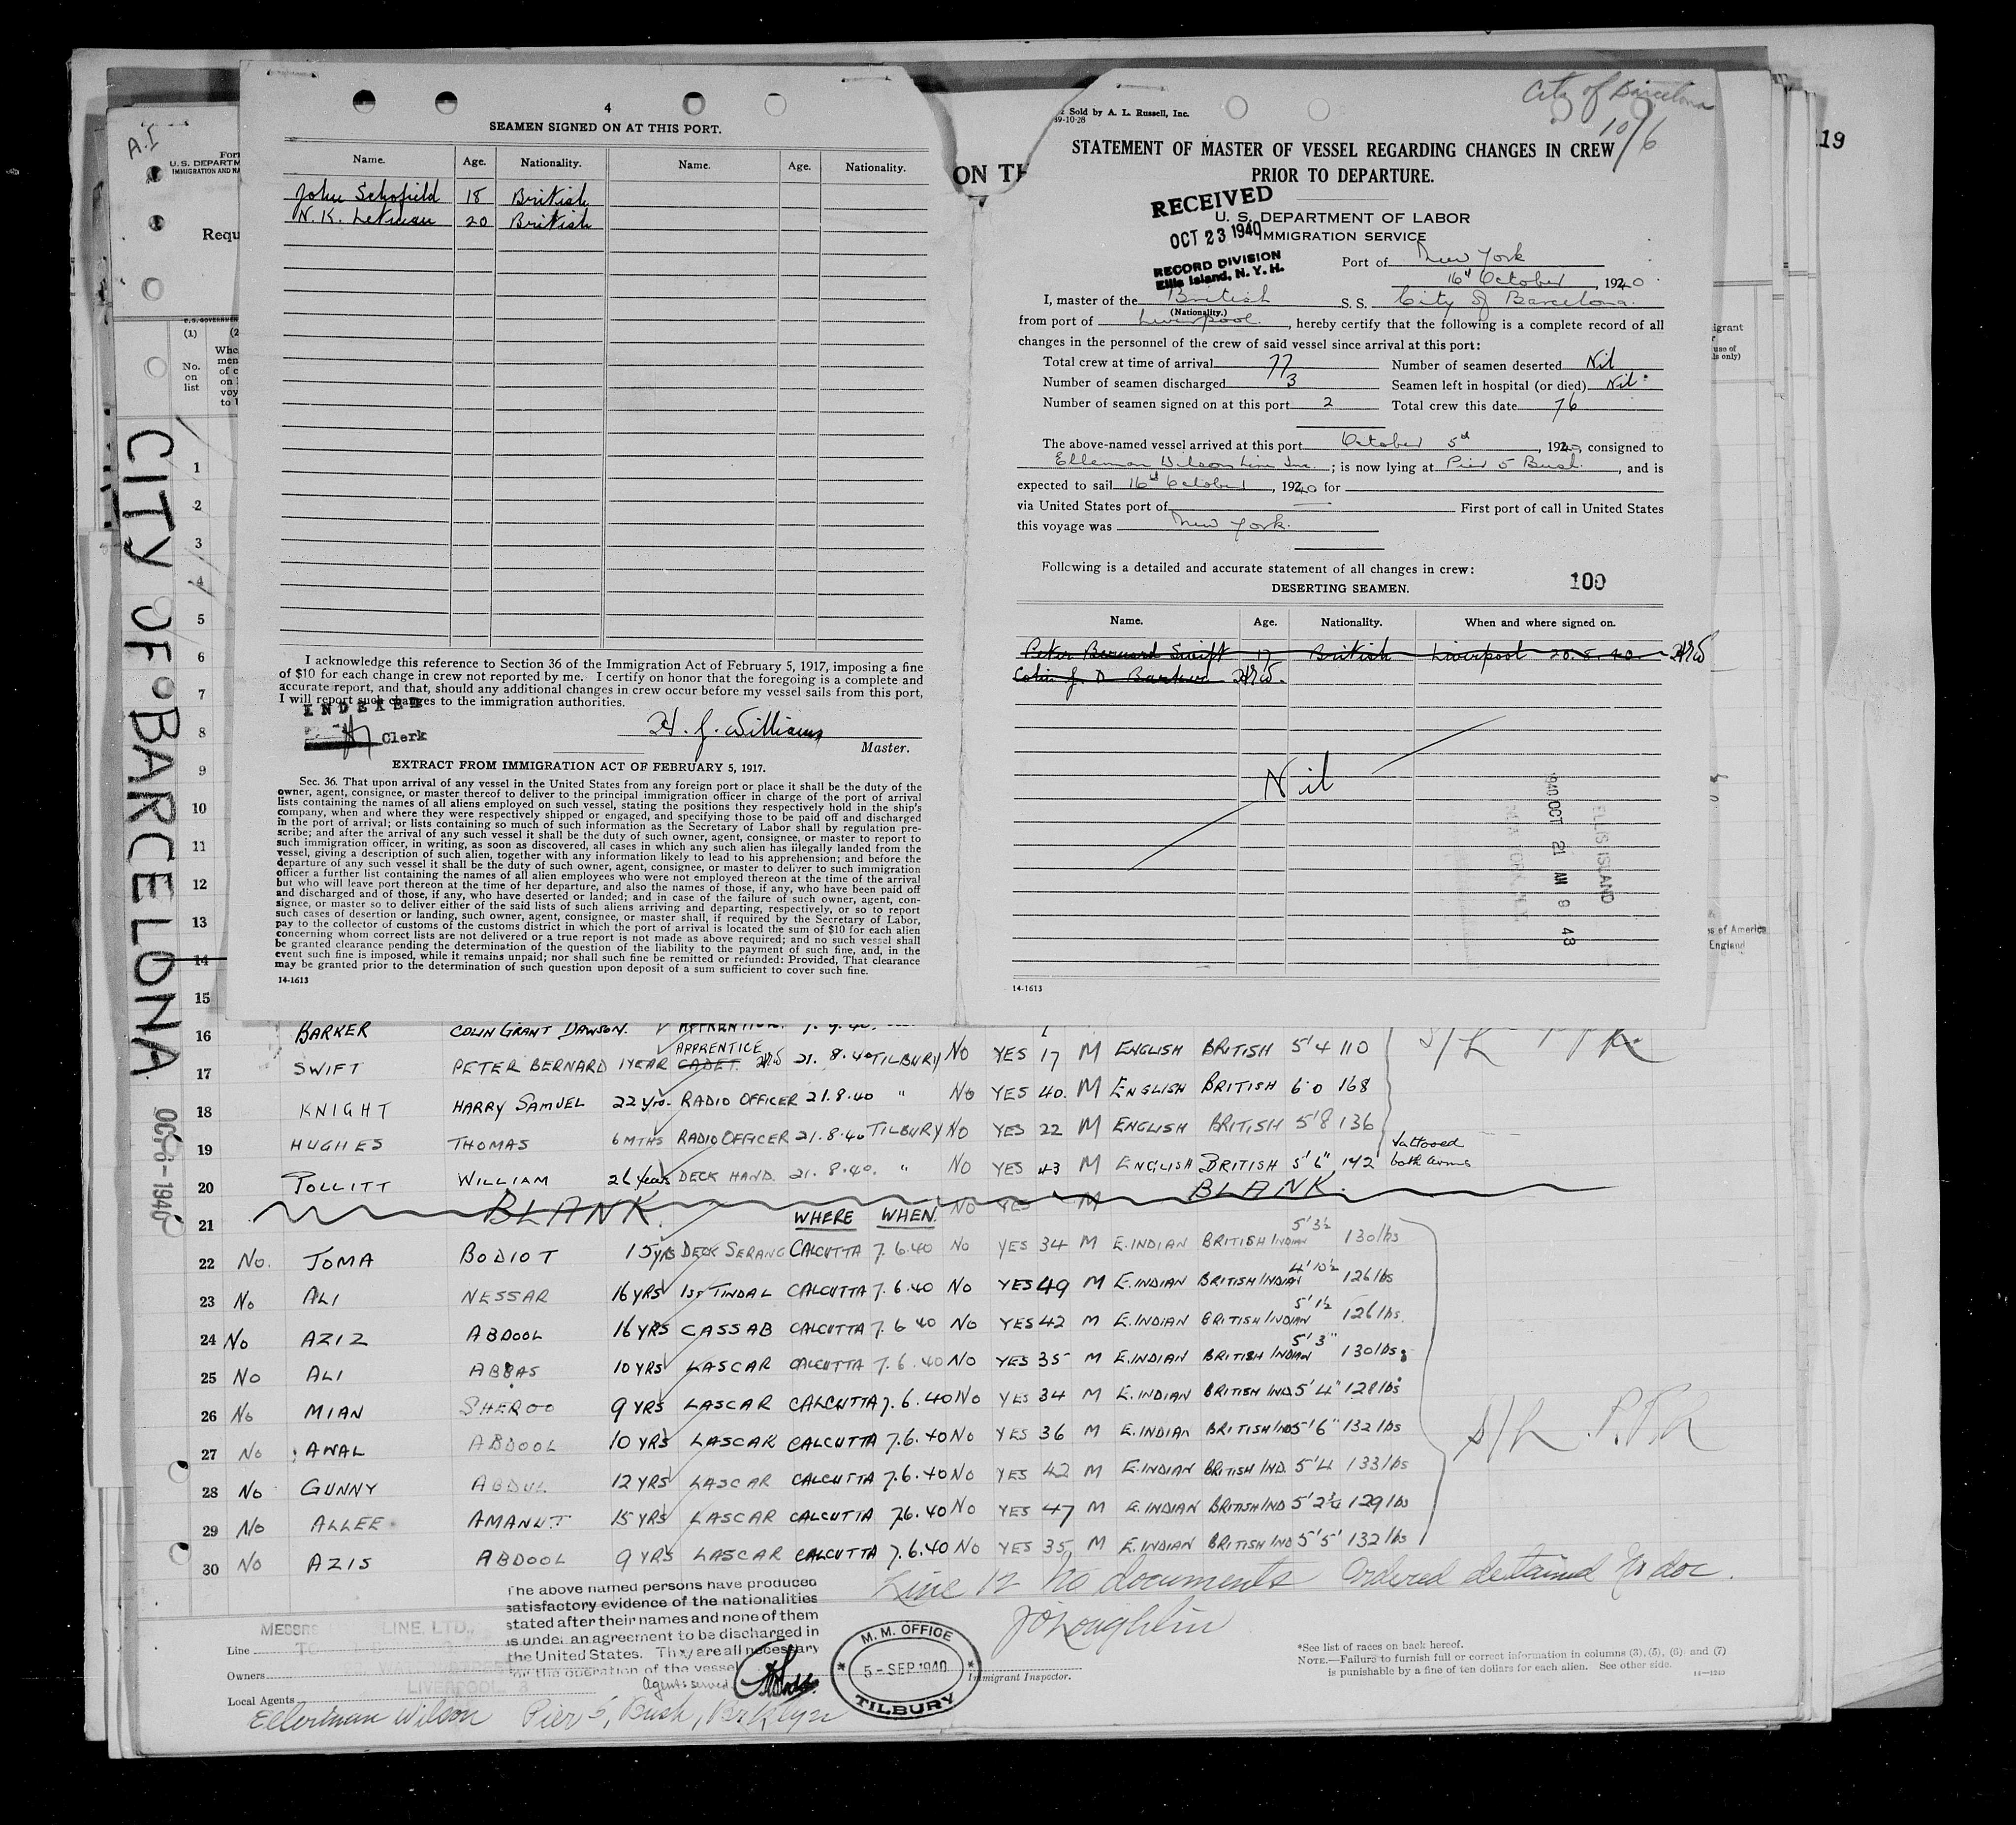 4
SEAMEN SIGNED ON AT THIS PORT.
Name. Age. Nationality. Name. Age. Nationality.
John Schofield 18 British
N. K. 20 British
I acknowledge this reference to Section 36 of the Immigration Act of February 5, 1917, imposing a fine
of $10 for each change in crew not reported by me. I certify on honor that the foregoing is a complete and
accurate report, and that, should any additional changes in crew occur before my vessel sails from this port,
I will report such changes to the immigration authorities.
INDEXED
Clerk
H. J. Williams
Master.
EXTRACT FROM IMMIGRATION ACT OF FEBRUARY 5, 1917.
Sec. 36. That upon arrival of any vessel in the United States from any foreign port or place it shall be the duty of the
owner, agent, consignee, or master thereof to deliver to the principal immigration officer in charge of the port of arrival
lists containing the names of all aliens employed on such vessel, stating the positions they respectively hold in the ship's
company, when and where they were respectively shipped or engaged, and specifying those to be paid off and discharged
in the port of arrival; or lists containing so much of such information as the Secretary of Labor shall by regulation pre-
scribe; and after the arrival of any such vessel it shall be the duty of such owner, agent, consignee, or master to report to
such immigration officer, in writing, as soon as discovered, all cases in which any such alien has illegally landed from the
vessel, giving a description of such alien, together with any information likely to lead to his apprehension; and before the
departure of any such vessel it shall be the duty of such owner, agent, consignee, or master to deliver to such immigration
officer a further list containing the names of all alien employees who were not employed thereon at the time of the arrival
but who will leave port thereon at the time of her departure, and also the names of those, if any, who have been paid off
and discharged and of those, if any, who have deserted or landed; and in case of the failure of such owner, agent, con-
signee, or master so to deliver either of the said lists of such aliens arriving and departing, respectively, or so to report
such cases of desertion or landing, such owner, agent, consignee, or master shall, if required by the Secretary of Labor,
pay to the collector of customs of the customs district in which the port of arrival is located the sum of $10 for each alien
concerning whom correct lists are not delivered or a true report is not made as above required; and no such vessel shall
be granted clearance pending the determination of the question of the liability to the payment of such fine, and, in the
event such fine is imposed, while it remains unpaid; nor shall such fine be remitted or refunded: Provided, That clearance
may be granted prior to the determination of such question upon deposit of a sum sufficient to cover such fine.
14-1613
City of Barcelona
10/6
Sold by A. L. Russell, Inc.
39-10-28
ON TH
STATEMENT OF MASTER OF VESSEL REGARDING CHANGES IN CREW
PRIOR TO DEPARTURE.
RECEIVED
OCT 23 1940
RECORD DIVISION
Ellis Island, N. Y. H.
U. S. DEPARTMENT OF LABOR
IMMIGRATION SERVICE
Port of New York
16th October, 1940
I, master of the British S. S. City of Barcelona
(Nationality.)
from port of Liverpool, hereby certify that the following is a complete record of all
changes in the personnel of the crew of said vessel since arrival at this port:
Total crew at time of arrival 77 Number of seamen deserted Nil
Number of seamen discharged 3 Seamen left in hospital (or died) Nil
Number of seamen signed on at this port 2 Total crew this date 76
The above-named vessel arrived at this port October 5th, 1940, consigned to
Ellerman Wilson Line Inc.; is now lying at Pier 5 Bush, and is
expected to sail 16th October, 1940 for
via United States port of First port of call in United States
this voyage was New York.
Following is a detailed and accurate statement of all changes in crew:
DESERTING SEAMEN. 100
Name. Age. Nationality. When and where signed on.
Peter Bernard Swift 17 British Liverpool 20.8.40 HJW
Colin G D Barker HJW.
Nil
1940 OCT 21 AM 9 43
ELLIS ISLAND
NEW YORK, N.Y.
14-1613
119
A.I
U.S. DEPARTM
IMMIGRATION AND NA
Requ
(1)
No.
on
list
CITY OF BARCELONA
OCT 6 - 1940
1
2
3
4
5
6
7
8
9
10
11
12
13
14
15
es of America
England
16 BARKER COLIN GRANT DAWSON. APPRENTICE.
17 SWIFT PETER BERNARD 1 YEAR CADET APPRENTICE HJW 21.8.40 TILBURY NO YES 17 M ENGLISH BRITISH 5'4 110
18 KNIGHT HARRY SAMUEL 22 yrs. RADIO OFFICER 21.8.40 " NO YES 40. M ENGLISH BRITISH 6.0 168
19 HUGHES THOMAS 6 MTHS RADIO OFFICER 21.8.40 TILBURY NO YES 22 M ENGLISH BRITISH 5'8 136
20 POLLITT WILLIAM 26 years DECK HAND. 21.8.40. " NO YES 43 M ENGLISH BRITISH 5'6" 142 tattooed both arms
21 BLANK. NO YES M BLANK.
WHERE WHEN.
22 No. TOMA BODIOT 15 yrs DECK SERANG CALCUTTA 7.6.40 No YES 34 M E. INDIAN BRITISH INDIAN 5'3½ 130 lbs
23 No ALI NESSAR 16 YRS 1ST TINDAL CALCUTTA 7.6.40 No YES 49 M E. INDIAN BRITISH INDIAN 4'10½ 126 lbs
24 No AZIZ ABDOOL 16 YRS CASSAB CALCUTTA 7.6 40 No YES 42 M E. INDIAN BRITISH INDIAN 5'1½ 126 lbs.
25 No ALI ABBAS 10 YRS LASCAR CALCUTTA 7.6.40 No YES 35 M E. INDIAN BRITISH INDIAN 5'3" 130 lbs
26 No MIAN SHEROO 9 YRS LASCAR CALCUTTA 7.6.40 No YES 34 M E. INDIAN BRITISH IND 5'4" 128 lbs
27 No AWAL ABDOOL 10 YRS LASCAR CALCUTTA 7.6.40 No YES 36 M E. INDIAN BRITISH IND 5'6" 132 lbs
28 No GUNNY ABDUL 12 YRS LASCAR CALCUTTA 7.6.40 No YES 42 M E. INDIAN BRITISH IND. 5'4 133 lbs
29 No ALLEE AMANUT 15 YRS LASCAR CALCUTTA 7.6.40 No YES 47 M E. INDIAN BRITISH IND 5'2¾ 129 lbs
30 No AZIS ABDOOL 9 YRS LASCAR CALCUTTA 7.6.40 No YES 35 M E. INDIAN BRITISH IND 5'5' 132 lbs
Line 12 No documents Ordered detained no doc.
J O'Loughlin
Immigrant Inspector.
The above named persons have produced
satisfactory evidence of the nationalities
stated after their names and none of them
is under an agreement to be discharged in
the United States. They are all necessary
for the operation of the vessel.
Agents served.
M. M. OFFICE
5 - SEP 1940
TILBURY
MESSRS LINE, LTD.,
Line
Owners
LIVERPOOL, 3
Local Agents
Ellerman Wilson Pier 5, Bush, Brooklyn
*See list of races on back hereof.
NOTE.—Failure to furnish full or correct information in columns (3), (5), (6) and (7)
is punishable by a fine of ten dollars for each alien. See other side.